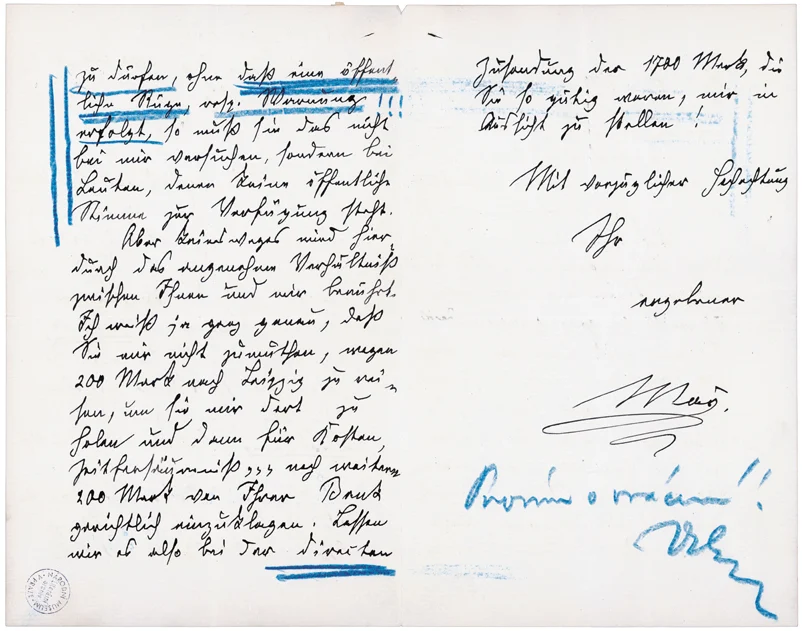 zu dürfen, ohne daß eine öffent-
liche Rüge, resp. Warnung !!!
erfolgt, so muß sie das nicht
bei mir versuchen, sondern bei
Leuten, denen keine öffentliche
Stimme zur Verfügung steht.
Aber keineswegs wird hier-
durch das angenehme Verhältniß
zwischen Ihnen und mir berührt.
Ich weiß ja ganz genau, daß
Sie mir nicht zumuthen, wegen
200 Mark nach Leipzig zu rei-
sen, um sie mir dort zu
holen und dann für Kosten,
Zeitversäumniß,,, noch weitere
200 Mark von Ihrer Bank
gerichtlich einzuklagen. Lassen
wir es also bei der directen
Zusendung der 1700 Mark, die
Sie so gütig waren, mir in
Aussicht zu stellen!
Mit vorzüglicher Hochachtung
Ihr
ergebener
May.
Prosím o vrácení!!
NÁRODNÍ MUSEUM